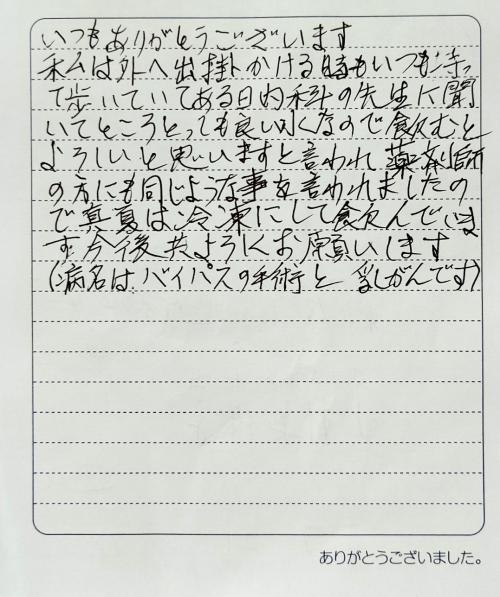 いつもありがとうございます
私は外へ出掛かける時もいつも持っ
て歩いていてある日内科の先生に聞
いてところとっても良い水なので飲むと
よろしいと思いますと言われ薬剤師
の方にも同じような事を言われましたの
で真夏は冷凍にして飲んでいま
す今後共よろしくお願いします
(病名はバイパスの手術と乳がんです)
ありがとうございました。